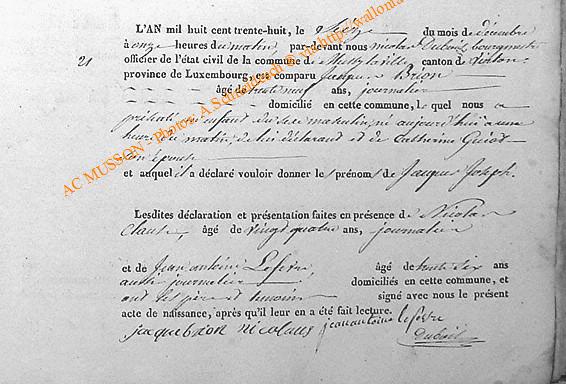 L'AN mil huit cent trente-huit, le seize du mois de décembre
à onze heures du matin, par-devant nous nicolas Duboil, bourgmestre
21 officier de l'état civil de la commune de Mussy la ville canton de virton
province de Luxembourg, est comparu Jacques Brion
âgé de trente neuf ans, journalier
domicilié en cette commune, lequel nous a
présenté un enfant du sexe masculin, né aujourd'hui a une
heure du matin, de lui déclarant et de Catherine
son épouse
et auquel il a déclaré vouloir donner le prénom de Jacques Joseph.
Lesdites déclaration et présentation faites en présence de Nicolas
Claude, âgé de vingt quatre ans, journalier
et de Jean antoine Lefevre, âgé de trente six ans
aussi journalier domiciliés en cette commune, et
ont les père et témoins signé avec nous le présent
acte de naissance, après qu'il leur en a été fait lecture.
jacque brion nicolaus jean antoine lefevre
Duboil
AC MUSSON - Photos: A.Schmatrasch © via http://wallonia